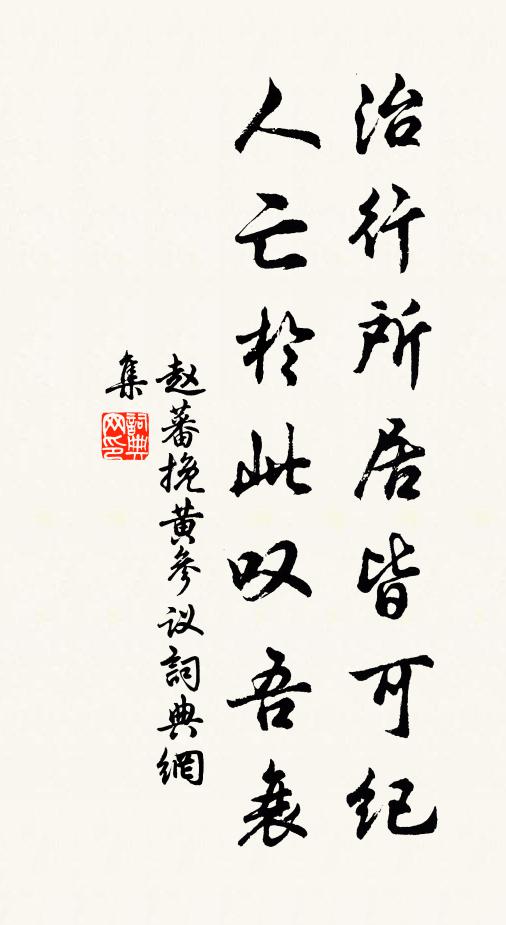 治行所居皆可纪
人亡於此叹吾衰
赵蕃挽黄参议詞典網
集
詞典
网印